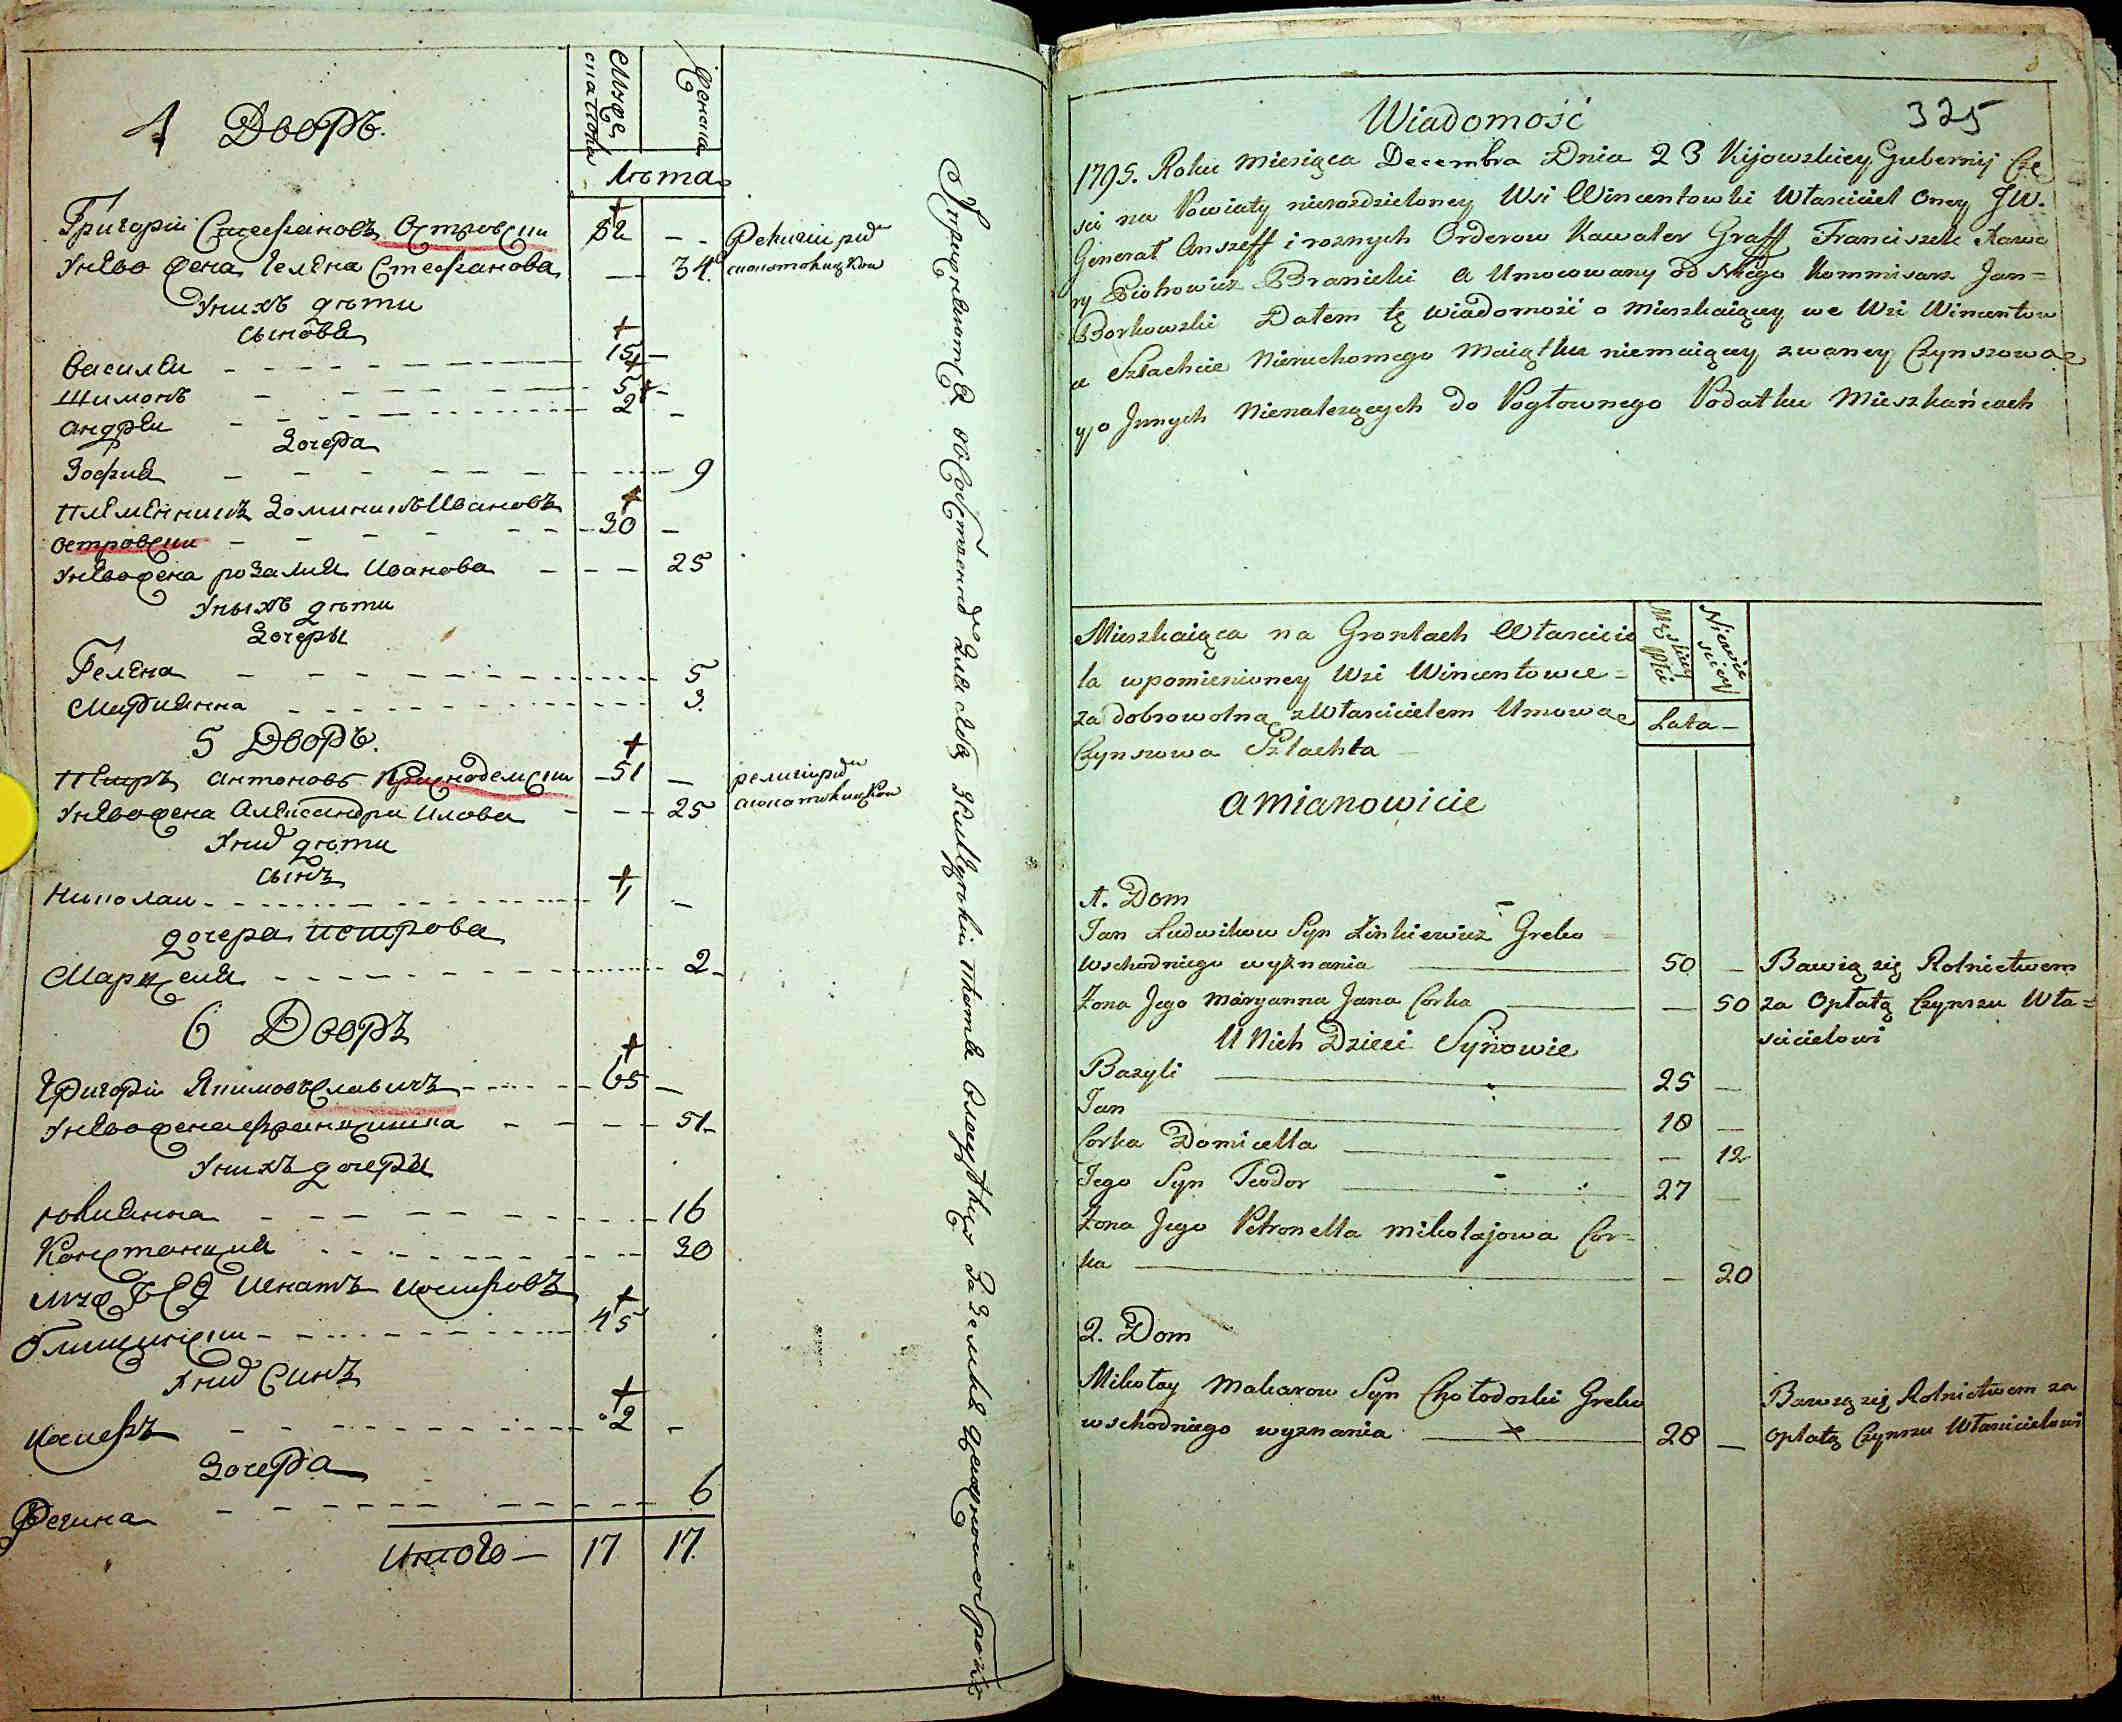 4 Дворъ.
Мужеска пола
Женска
лѣта
Григорій Стефановъ Островски 52 - -
Религіи рим
католицкои
У нево жена Гелена Стефанова — 34
У нихъ дѣти
сынове
Василеи 15 —
Шимонъ 5 -
Андреи 2 -
Дочера
Зофия 9
племенникъ Доминикъ Ивановъ
Островски 30 —
У нево жена розалия Иванова 25
У ныхъ дѣти
Дочеры
Гелена 5
Марианна 3.
5 Дворъ.
Петръ Антоновъ Краснодемски 51 —
религіи рим
католицкои
У нево жена Александра 25
У них дѣти
сынъ
Николаи 1 —
дочера петрова
Марцеля 2
6 Дворъ
Григорій Якимовъ Славичъ 65 —
У нево жена францишка 51
У нихъ дочеры
юлианна 16
Констанция 30
Игнатъ иосифовъ
45
У них Синъ
иосифъ 2 —
Дочера
Регина 6
Итого — 17 17.
325
Wiadomość
1795. Roku Miesiąca Decembra Dnia 23 Kijowskiey Gubernij Czę
sci na Powiaty nierozdzieloney Wsi Wincentowki Własciciel Oney JW.
Generał Anszeff i roznych Orderow Kawaler Graff Franciszek Xawe
ry Piotrowicz Branicki a Umocowany od Niego Kommisarz Jan =
Borkowski Dałem tę wiadomość o Mieszkaiącey we Wsi Wincentow
ce Szlachcie Nieruchomego Maiątku niemaiącey zwaney Czynszowae
y o Jnnych Nienalezących do Pogłownego Podatku Mieszkańcach
Mieszkaiąca na Gruntach Własciciе
la wpomienioney Wsi Wincentowce =
za dobrowolną z Własicielem Umowae
Czynszowa Szlachta —
Męskiey płci
Niewiesciey
Lata —
a mianowicie
1. Dom
Jan Ludwikow Syn Zinkiewicz Greko =
wschodniego wyznania 50 — Bawią się Rolnictwem
Zona Jego Maryanna Jana Corka — 50 za Opłatą Czynszu Wła=
scicielowi
U Nich Dzieci Synowie
Bazyli 25 —
Jan 18 —
Corka Domicella — 12
Jego Syn Teodor 27 —
Zona Jego Petronella Mikołajowa Cor=
ka — 20
2. Dom
Mikołay Makarow Syn Chołodoski Greko
wschodniego wyznania 28 —
Bawią się Rolnictwem za
Opłatą Czynszu Własicielowi